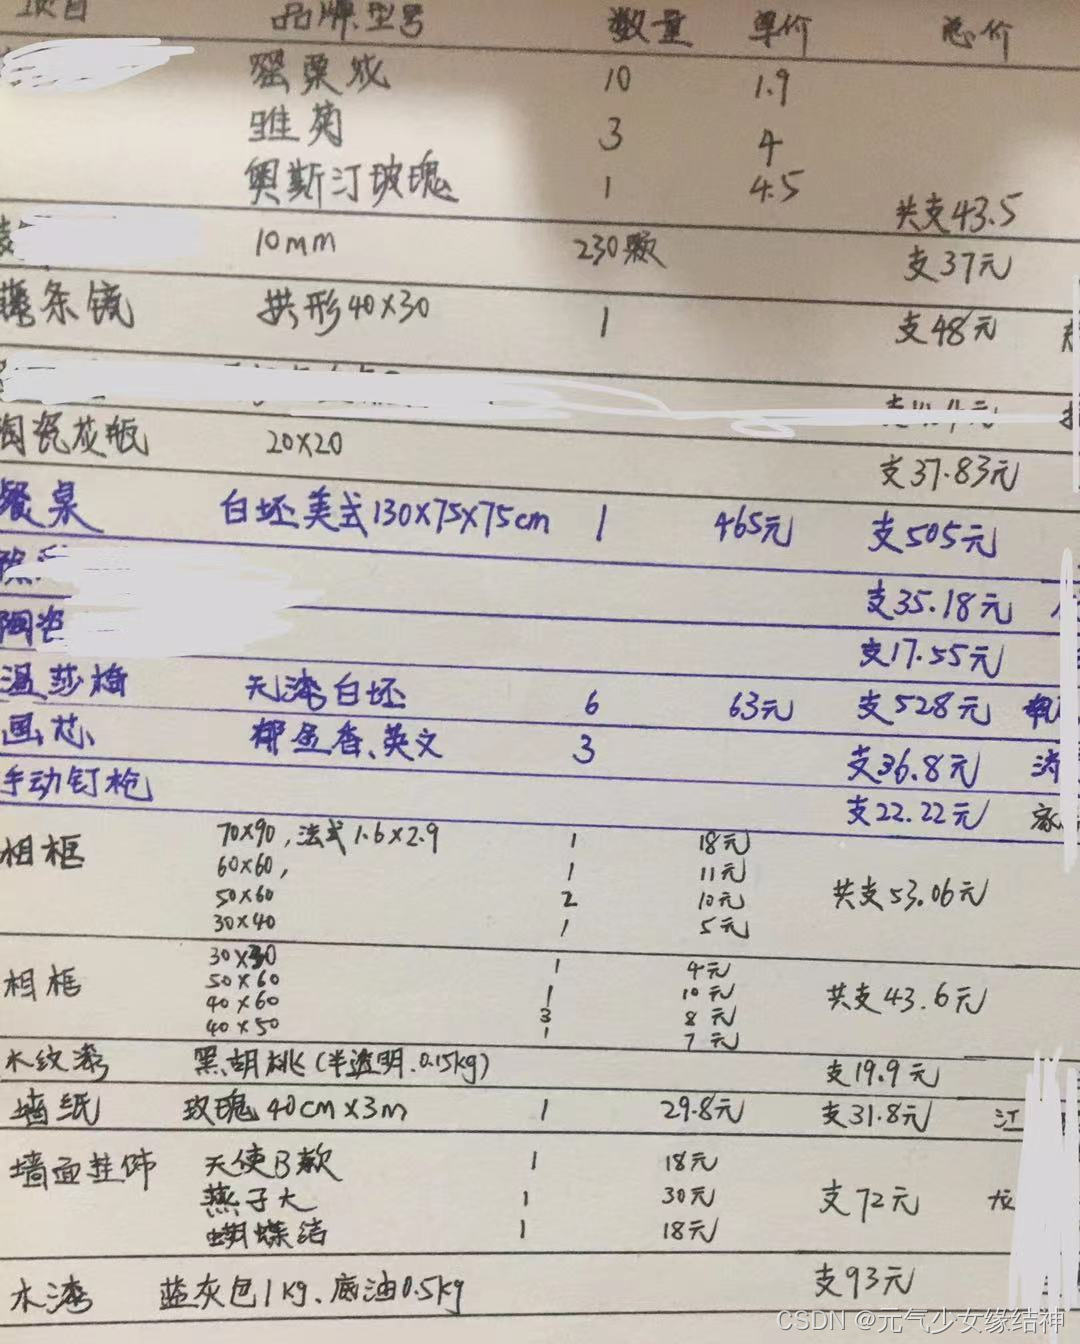 项目 品牌型号 数量 单价 总价
罂粟花 10 1.9
雏菊 3 4
奥斯汀玻瑰 1 4.5 共支43.5
10mm 230颗 支37元
藤条镜 拱形40X30 1 支48元
陶瓷花瓶 20X20 支37.83元
餐桌 白坯美式130X75X75cm 1 465元 支505元
支35.18元
陶瓷 支17.55元
温莎椅 无漆白坯 6 63元 支528元
画芯 郁金香、英文 3 支36.8元
手动钉枪 支22.22元
相框 70X90,法式1.6X2.9 1 18元
60X60, 1 11元
50X60 2 10元 共支53.06元
30X40 1 5元
相框 30X30 1 4元
50X60 1 10元
40X60 3 8元 共支43.6元
40X50 1 7元
木纹漆 黑胡桃(半透明.0.15kg) 支19.9元
墙纸 玫瑰40cmX3m 1 29.8元 支31.8元 江
墙面挂饰 天使B款 1 18元
燕子大 1 30元 支72元
蝴蝶结 1 18元
木漆 蓝灰包1kg、底油0.5kg 支93元
CSDN @元气少女缘结神